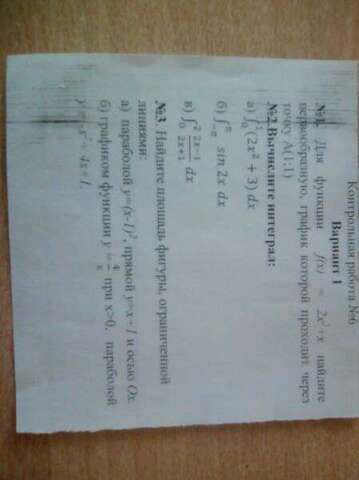 Контрольная работа №6
Вариант 1
№1. Для функции f(x) = 2x²+x найдите
первообразную, график которой проходит через
точку А(1;1)
№2.Вычислите интеграл:
а) ∫₀¹(2x² + 3) dx
б) ∫₋π^π sin 2x dx
в) ∫₀² (2x−1)/(2x+1) dx
№3. Найдите площадь фигуры, ограниченной
линиями:
а) параболой y=(x-1)², прямой y=x+1 и осью Ох.
б) графиком функции y = 4/x при x>0, параболой
y = -x² + 4x+1.